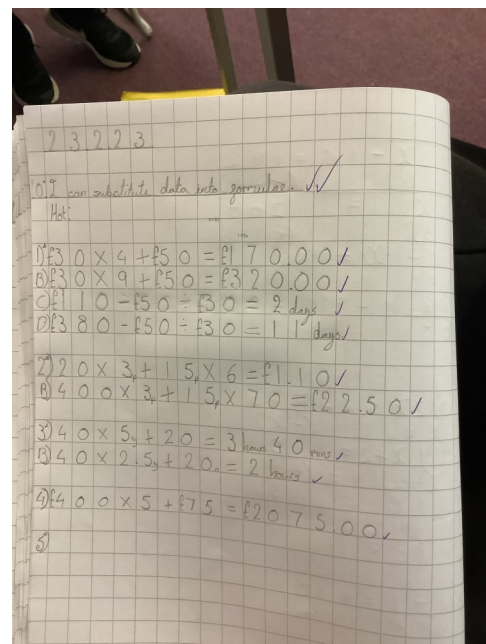 23.2.23
LO: I can substitute data into formulae.
Hot:
1) £30 × 4 + £50 = £170.00
B) £30 × 9 + £50 = £320.00
C) £110 - £50 ÷ £30 = 2 days
D) £380 - £50 ÷ £30 = 11 days
2) 20 × 3p + 15p × 6 = £1.10
B) 400 × 3p + 15p × 70 = £22.50
3) 40 × 5 + 20 = 3 hours 40 mins
B) 40 × 2.5 + 20 = 2 hours
4) £400 × 5 + £75 = £2075.00
5)